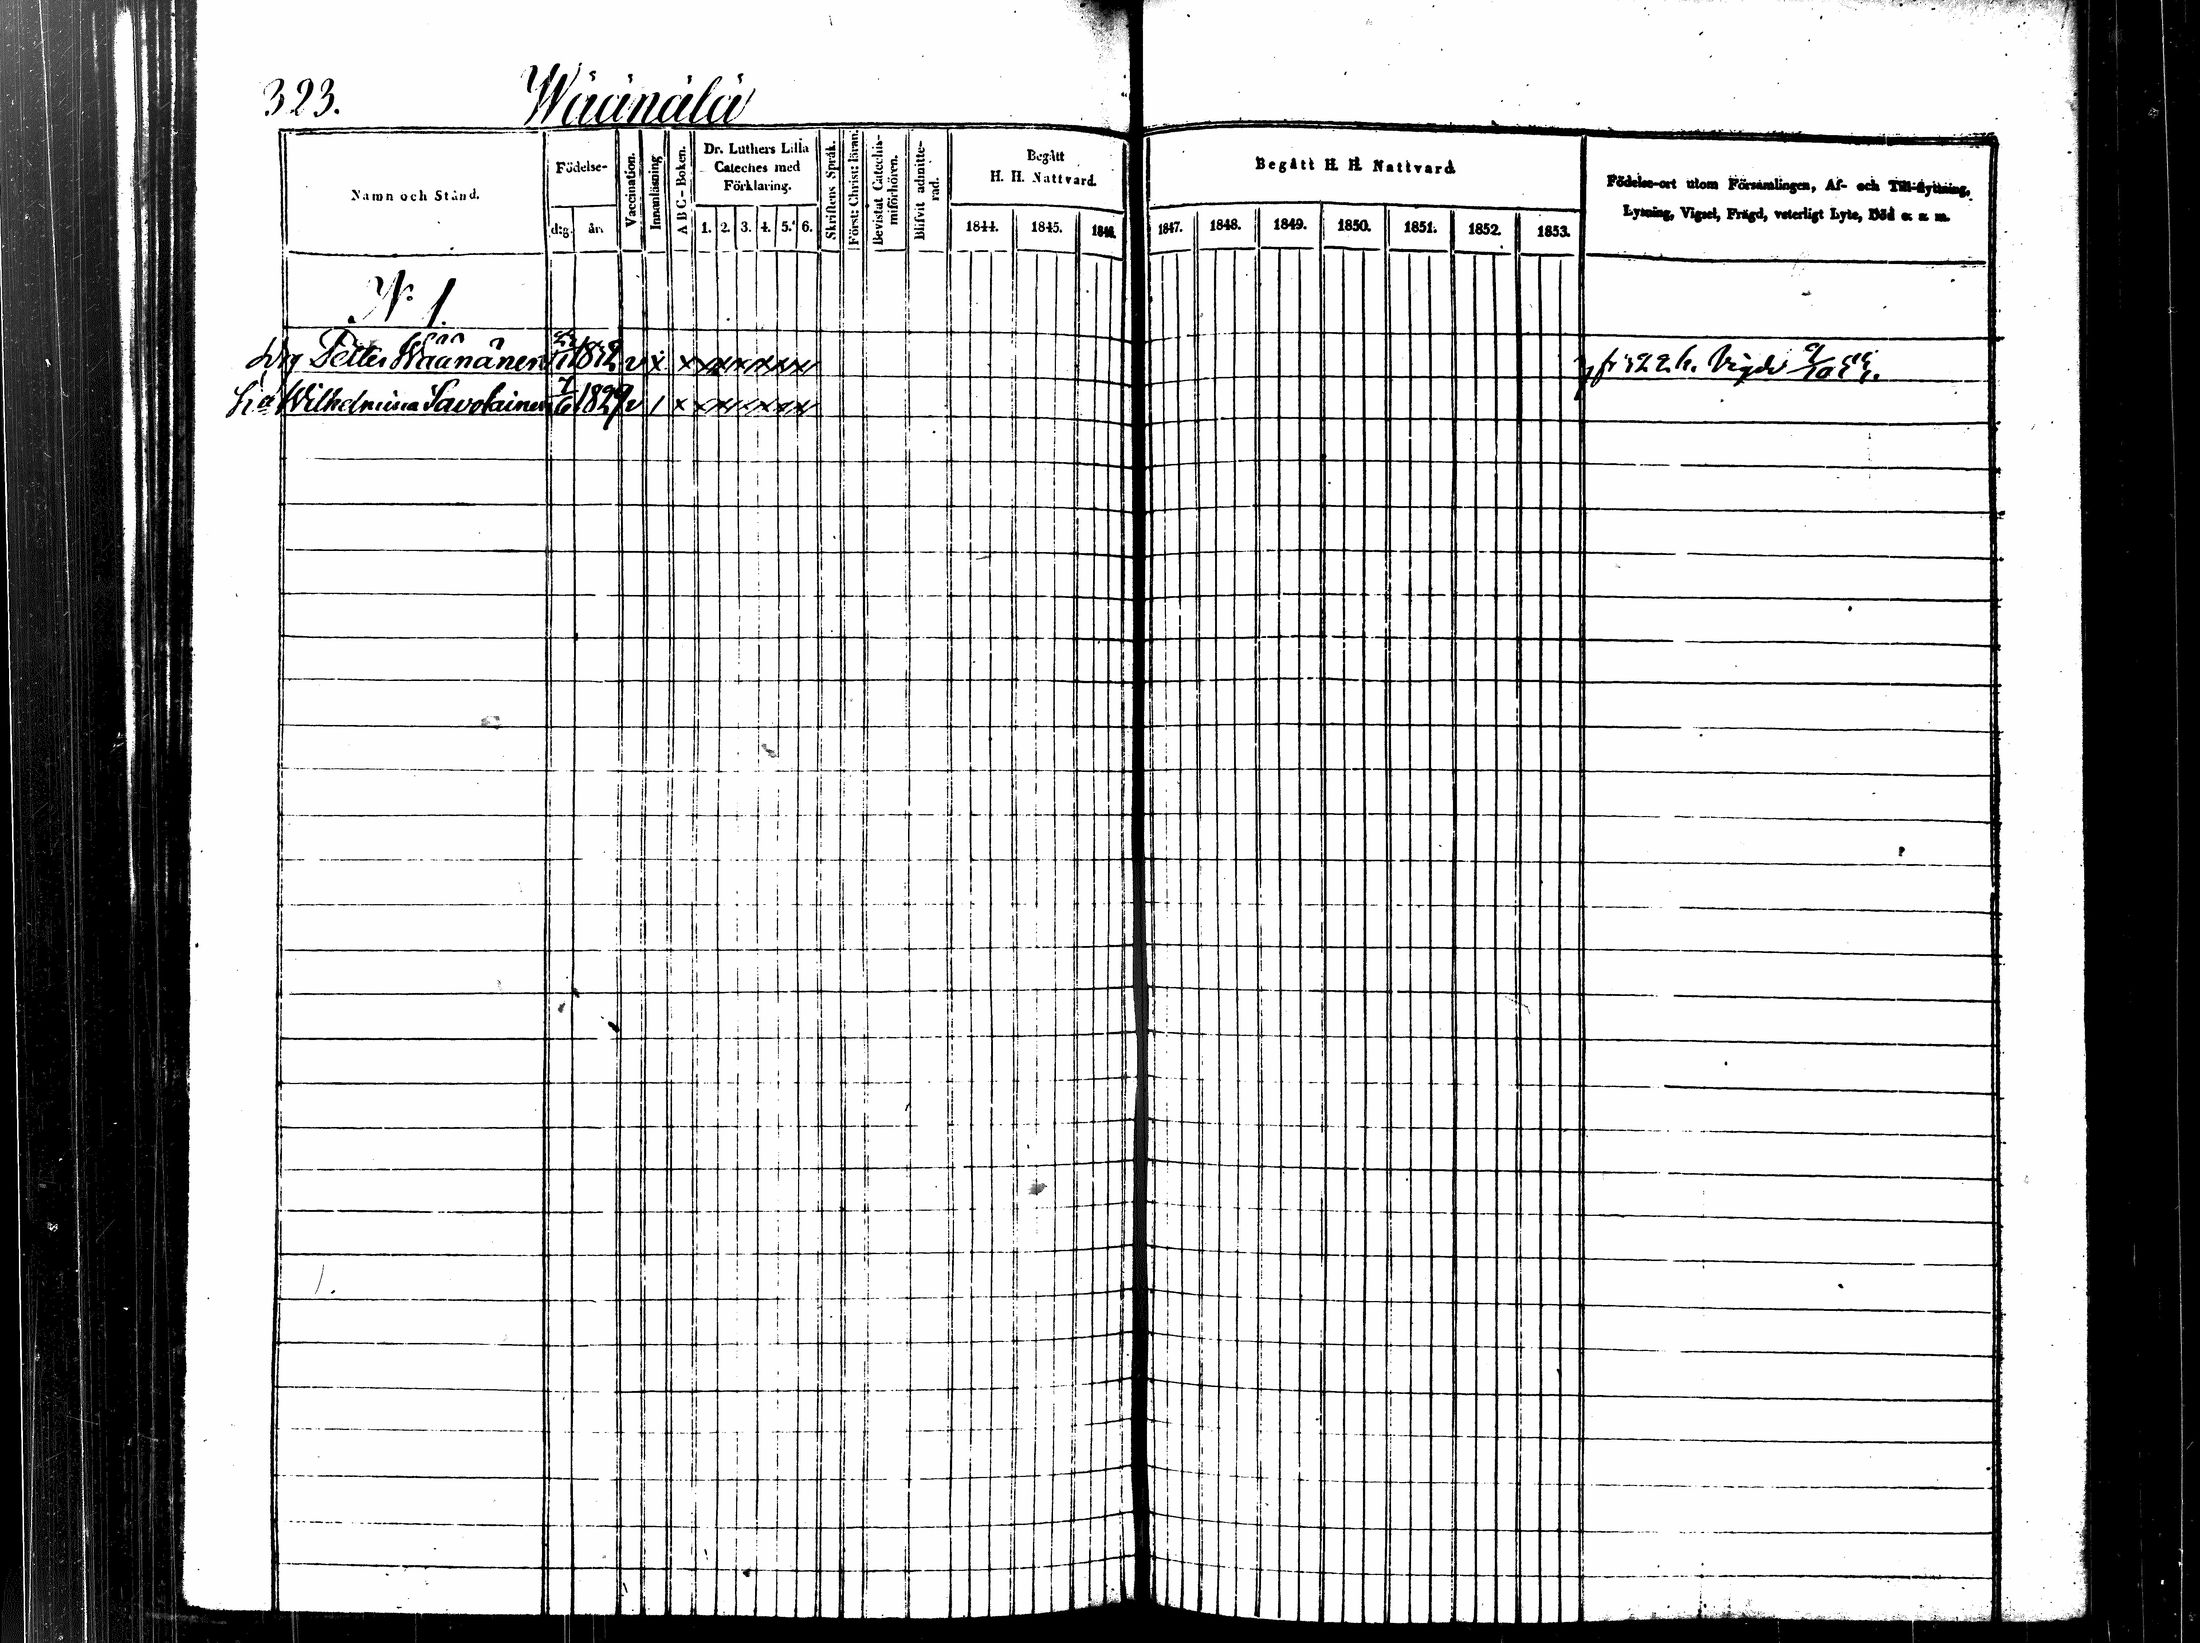 323. Wäänälä
Namn och Stånd.
Födelse-
d:g. år.
Vaccination.
Innanläsning
A B C - Boken.
Dr. Luthers Lilla
Cateches med
Förklaring.
1. 2. 3. 4. 5. 6.
Skriftens Språk.
Först: Christ: läran.
Bevistat Catechis-
miförhören.
Blifvit admitte-
rad.
Begått
H. H. Nattvard.
1844. 1845. 1846.
Begått H. H. Nattvard.
1847. 1848. 1849. 1850. 1851. 1852. 1853.
Födelse-ort utom Församlingen, Af- och Till-flyttning,
Lysning, Vigsel, Frägd, veterligt Lyte, Död o. s. m.
N:o 1.
Drg Petter Wäänänen v x x x x x x x x Vigde
Wilhelmina Savolainen 7/6 1829 v / x x x x x x x